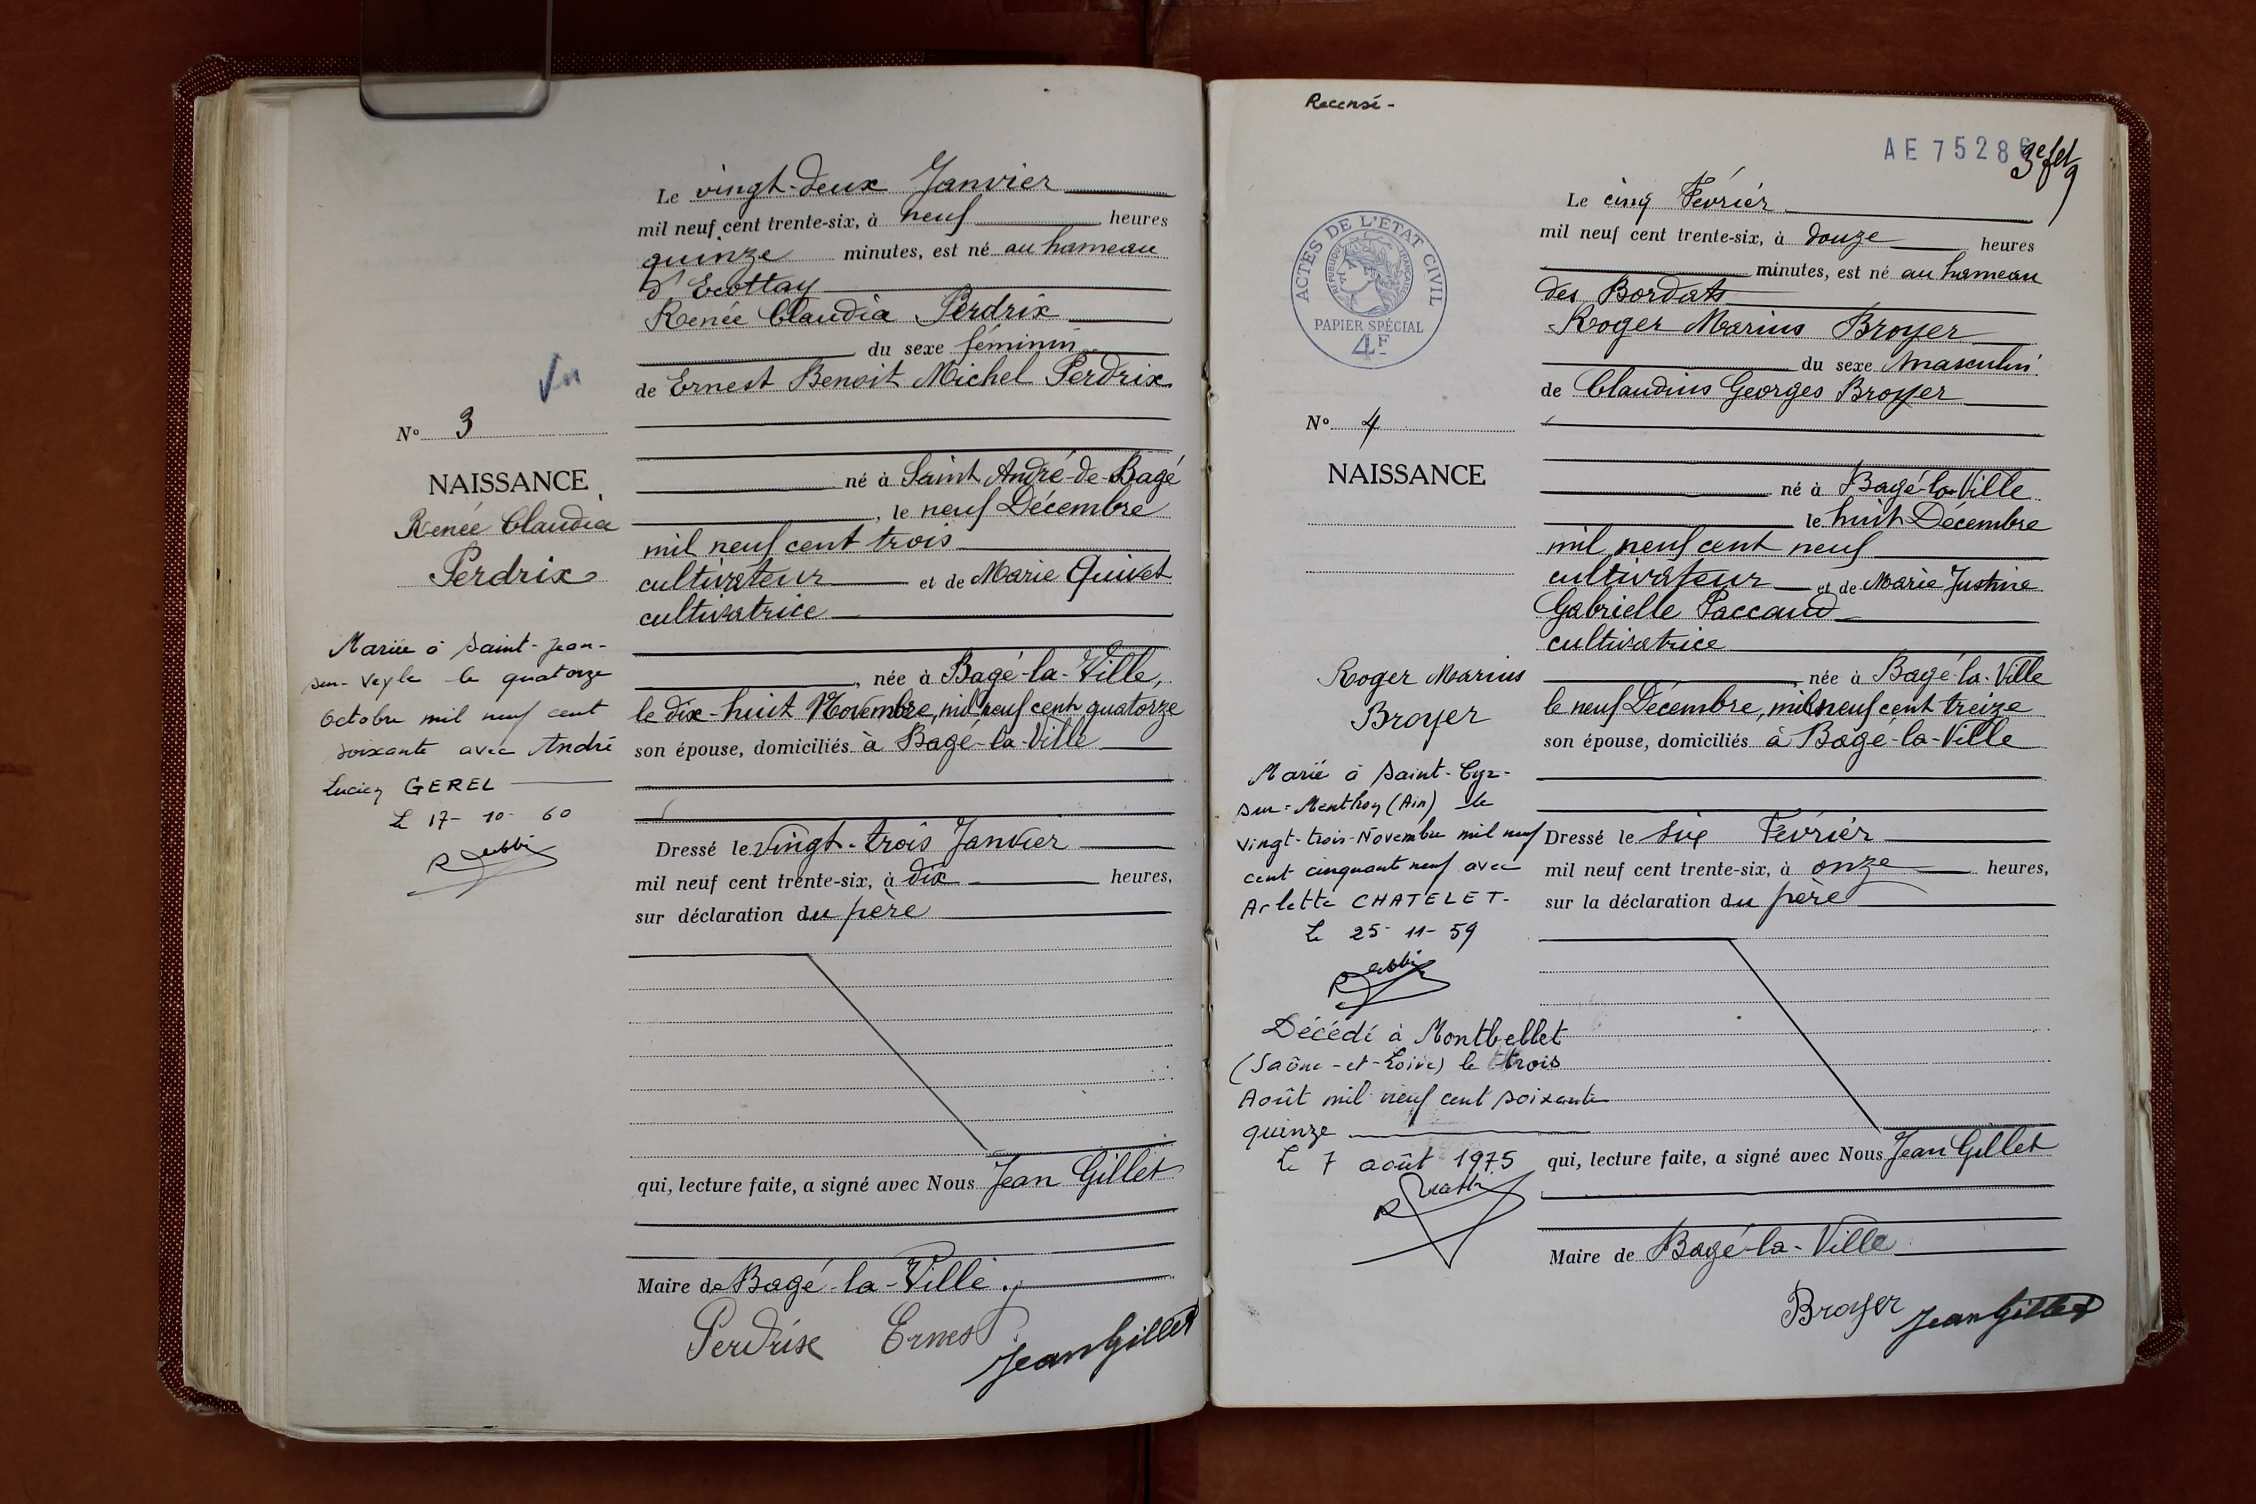 Le vingt-deux Janvier
mil neuf cent trente-six, à neuf heures
quinze minutes, est né au hameau
d'Ecottay
Renée Claudia Perdrix
du sexe féminin
de Ernest Benoit Michel Perdrix
né à Saint André-de-Bagé
, le neuf Décembre
mil neuf cent trois
cultivateur et de Marie Quivet
cultivatrice
, née à Bagé-la-Ville,
le dix-huit Novembre, mil neuf cent quatorze
son épouse, domiciliés à Bagé-la-Ville
Dressé le vingt-trois Janvier
mil neuf cent trente-six, à dix heures,
sur déclaration du père
qui, lecture faite, a signé avec Nous Jean Gillet
Maire de Bagé-la-Ville.
Perdrix Ernest
Jean Gillet
Vu
No 3
NAISSANCE
Renée Claudia
Perdrix
Mariée à Saint-Jean-
sur-Veyle le quatorze
Octobre mil neuf cent
soixante avec André
Lucien GEREL
Le 17-10-60
Recensé-
AE 7528
3e fet
9
ACTES DE L'ÉTAT CIVIL
RÉPUBLIQUE FRANÇAISE
PAPIER SPÉCIAL
4F
No 4
NAISSANCE
Roger Marius
Broyer
Marié à Saint-Cyr-
sur-Menthon (Ain) le
vingt-trois-Novembre mil neuf
cent cinquante neuf avec
Arlette CHATELET-
Le 25-11-59
Décédé à Montbellet
(Saône-et-Loire) le trois
Août mil neuf cent soixante
quinze
Le 7 août 1975
Le cinq Février
mil neuf cent trente-six, à douze heures
minutes, est né au hameau
des Bordats
Roger Marius Broyer
du sexe masculin
de Claudius Georges Broyer
né à Bagé-la-Ville
le huit Décembre
mil neuf cent neuf
cultivateur et de Marie Justine
Gabrielle Paccaud
cultivatrice
, née à Bagé-la-Ville
le neuf Décembre, mil neuf cent treize
son épouse, domiciliés à Bagé-la-Ville
Dressé le six Février
mil neuf cent trente-six, à onze heures,
sur la déclaration du père
qui, lecture faite, a signé avec Nous Jean Gillet
Maire de Bagé-la-Ville
Broyer Jean Gillet